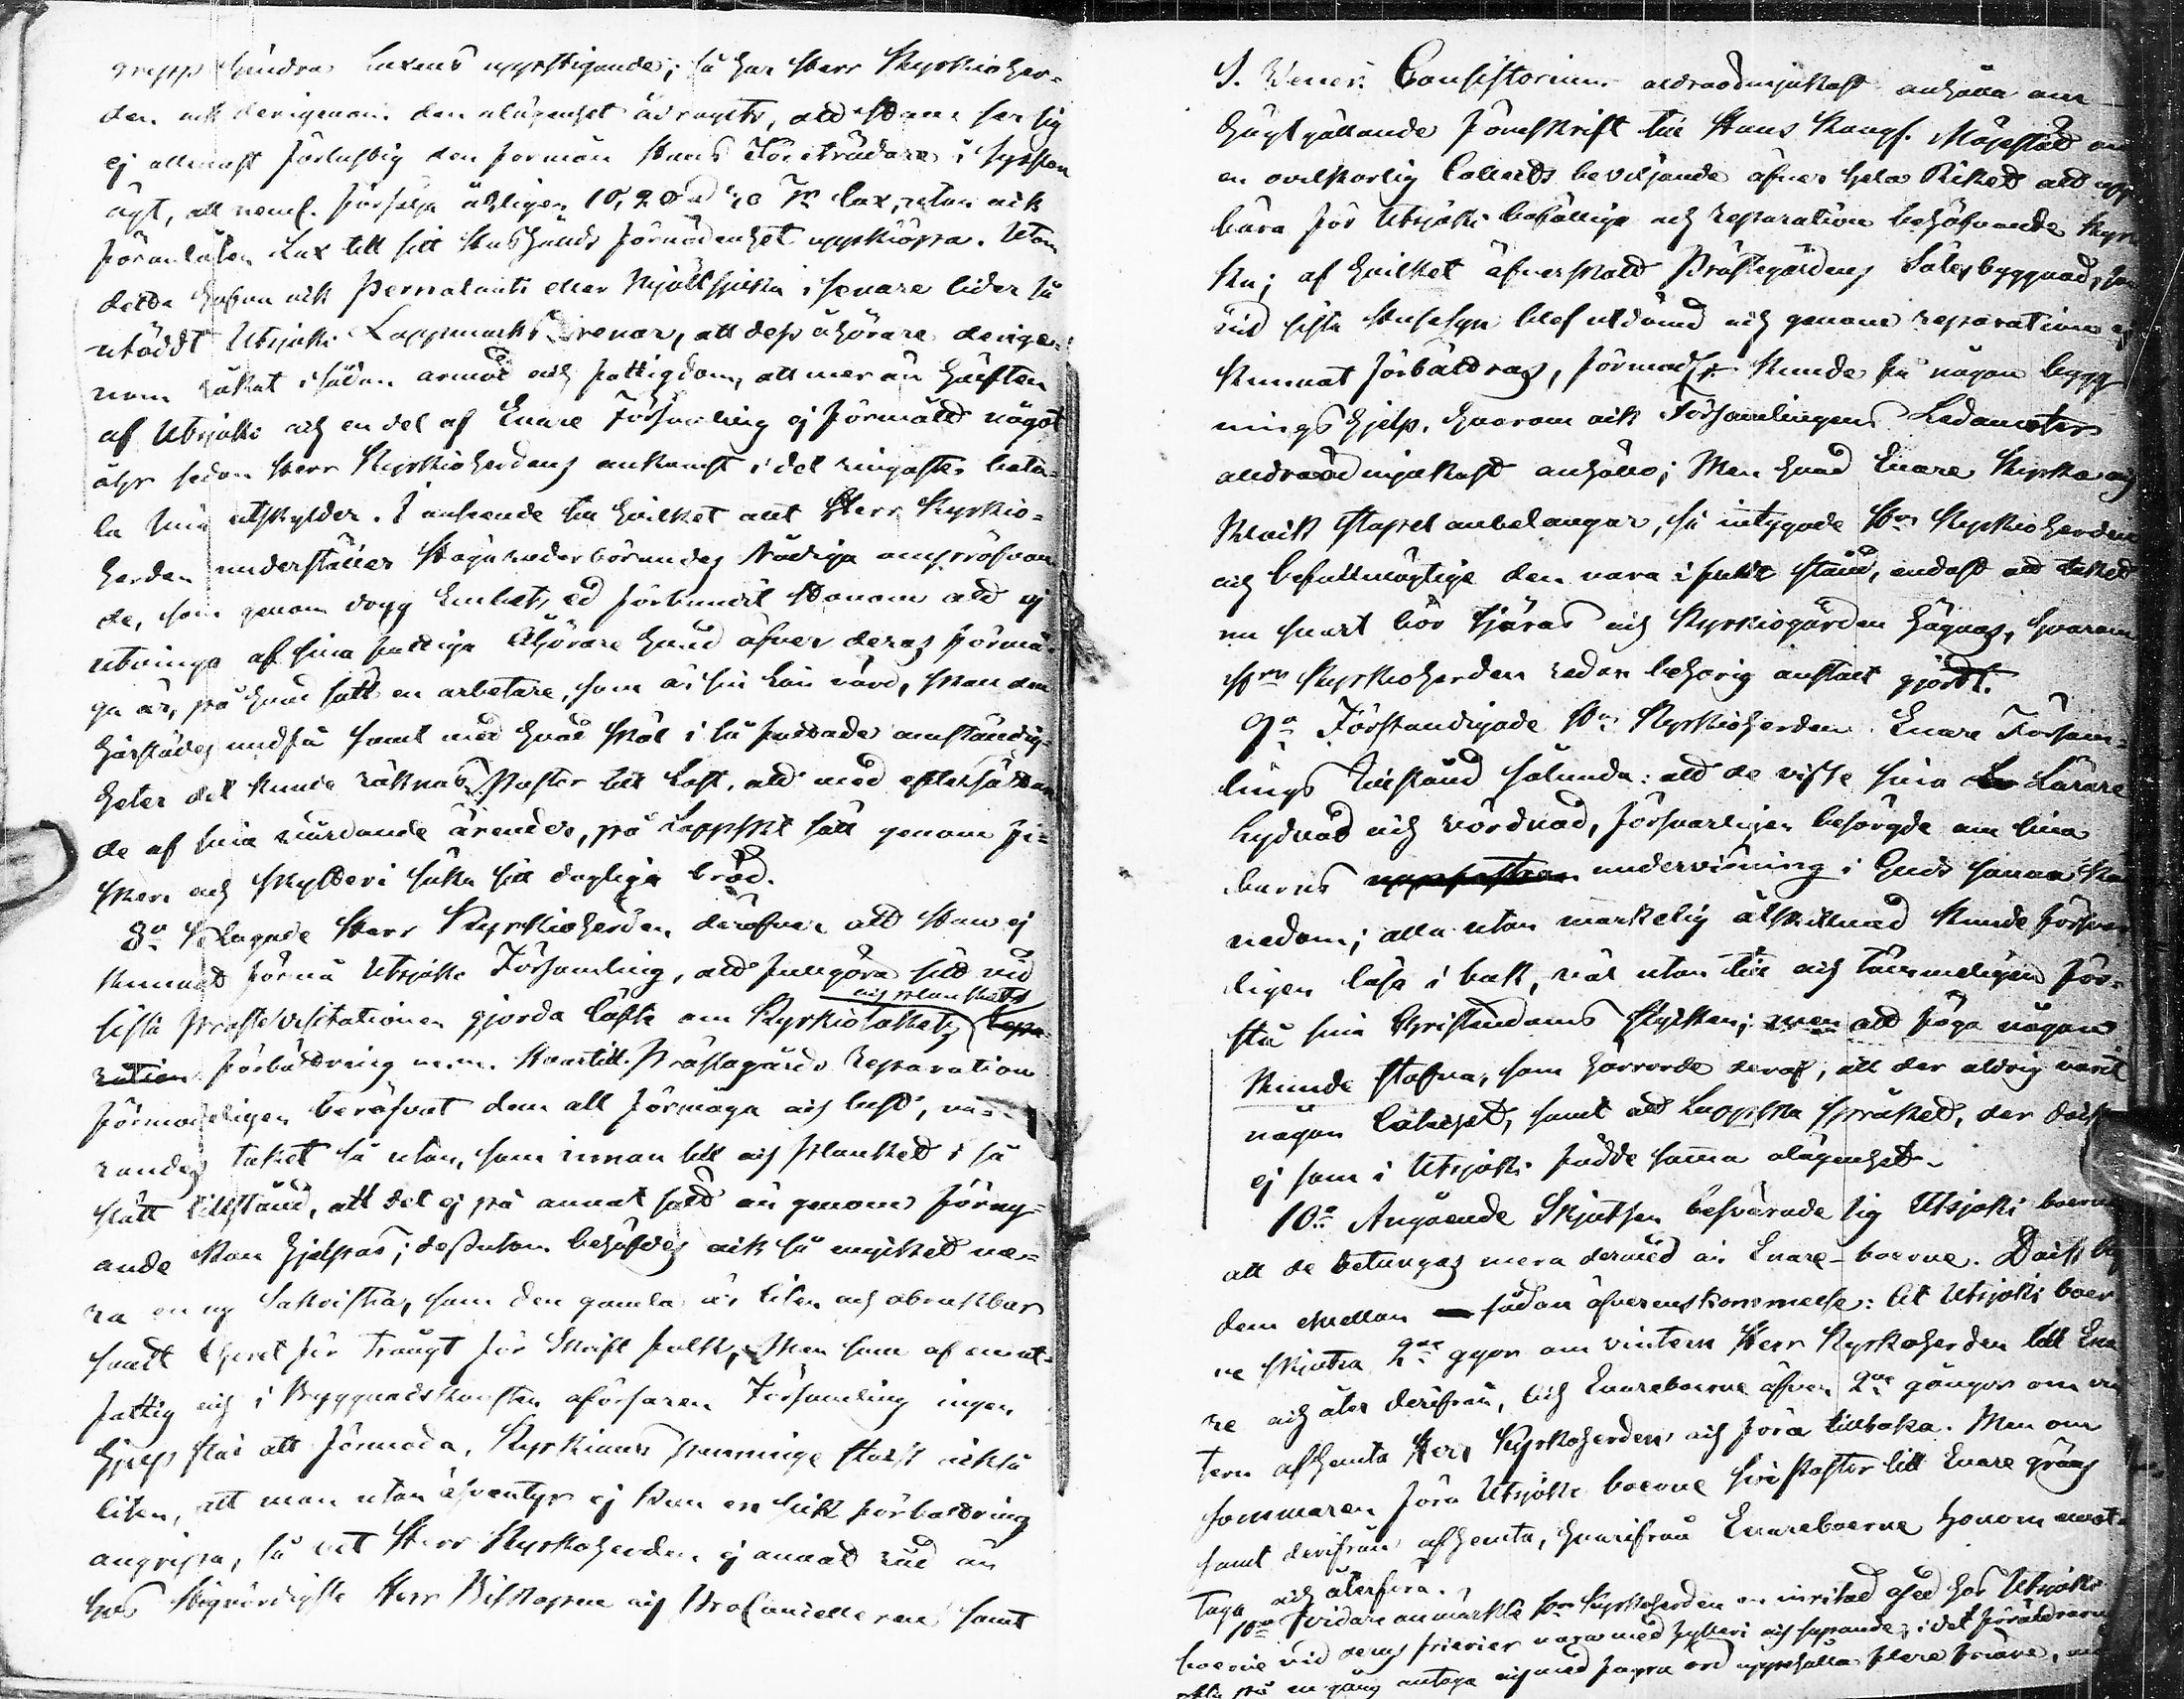 grepp hindra Laxens uppstigande; så har Herr Kyrkioher=
den ock derigenom den olägenhet ådragits, att Han ser sig
ej allenast förlustig den förmån Hans Företrädare i sysslan
ägt, att neml. försälja årligen 10, 20 a 30 Lax, utan ock
förmåten Lax till sitt Hushålls förnödenhet uppkiöpa. Utom
detta hafva ock i senare tider så
utödt Utsjoki Lappmarks renar, att dess åhörare derige=
nom råkat i sådan armod och fattigdom, att mer än hälften
af Utsjoki och en del af Enare Församling ej förmått något
åhr sedan Herr Kyrkioherdens ankomst i det ringaste beta=
la sina utskylder. I anseende til hvilket allt Herr Kyrkio=
herden underställer Höga vederbörandes Nådiga ompröfvan
de, som genom dopp Embets ed förbundit Honom att ej
utvinga af sina fattiga Åhörare hvad öfver deras förmå=
ga är, på hvad sätt en arbetare, som är sin lön värd, skall den
härstädes undfå samt med hvad skäl i så fattade omständig=
heter det kunde räknas Pastor till Last, att med
de af sina vårdande ärender, på Lappskt sätt genom fi=
skeri och skytteri söka sitt dagliga bröd.
8:o Beklagade Herr Kyrkioherden deröfver att Han ej
kunnat förmå Utsjoki Församling, att fullgöra sitt vid
och plankets
sista Prostevisitationen gjorda löfte om Kyrkiotakets Repa=
ration förbättring m.m. Hvartill Prästagårds Reparation
förmodeligen beröfvat dem all förmåga och lust, va=
randes taket så utan, som innan till och Planket i så
slätt tillstånd, att det ej på annat sätt än genom förny=
ande kan hjelpas; dessutom behöfdes ock så mycket
ra en ny Sakristia, som den gamla är liten och obrukbar
samt Choret för trångt för Skrift folk. Men som af en ut=
fattig och i Byggnadskonsten oförfaren Församling ingen
hjelp står att förmoda, Kyrkians penninge Stock också
liten, att man utan äfventyr ej kan en slik förbättring
angripa, så vet Herr Kyrkoherden ej annat råd än
hos Högvördigste Herr Biskopen och Procancelleren samt
S. Vener. Consistorium ödmjukast anhålla om
högtgällande förskrift till Hans Kongl. Majestät om
en ovilkorlig Collects beviljande öfver hela Riket att upp
bära för Utsjoki bofällige och reparation behöfvande Kyr
ka; af hvilket öfverskott Prästegårdens Sätes byggnad, som
vid sista Husesyn blef utdömd och genom reparation ej
kunnat förbättras, förmodel. kunde få någon bygg
nings hjelp, hvarom ock Församlingens Ledamöter
ödmjukast anhöllo; Men hvad Enare Kyrka och
Klock stapel anbelangar, så intygade H:r Kyrkioherden
och befullmägtige den vara i fullt stånd, endast att taket
nu snart bör tjäras och Kyrkiogården hägnas, hvarom
H:rn Kyrkioherden redan behörig anstalt gjordt.
9:o Förständigade H:r Kyrkioherden Enare Försam=
lings Tillstånd sålunda: att de viste sina Lärare
lydnad och vördnad, försvarligen besörgde om sina
barns undervisning i Guds sanna
nedom; alla utan märkelig åtskillnad kunde försvar
ligen läsa i bok, väl utan till och tämmeligen för=
stå sina Christendoms stycken; men att föga någon
kunde stafva, som härrörde deraf, att der aldrig varit
någon Catechet, samt att Lappska språket, der dock
ej som i Utsjoki födde samma olägenhet.
10:o Angående Skjutsen besvärade sig Utsjoki boerne
att de betungas mera dermed än Enare-boerne. Dock
dem mellan sådan öfverenskommelse: At Utsjoki boer
ne skjutsa 2:ne ggor om vintern Herr Kyrkoherden till Ena
re och åter derifrån, Och Enareboerne äfven 2:ne gånger om vin
tern afhemta Herr Kyrkoherden och föra tillbaka. Men om
sommaren föra Utsjoki boerne sin Pastor till Enare gräns
samt derifrån afhemta, hvarifrån Enareboerne honom mot=
taga och återföra.
Vidare anmärkte H:r Kyrkoherden en inritad osed hos Utsjoki
boerne vid deras frierier vara med fylleri och supande, i det föräldrarne
ofta på en gång antaga och med fagra ord uppehålla flere friare,